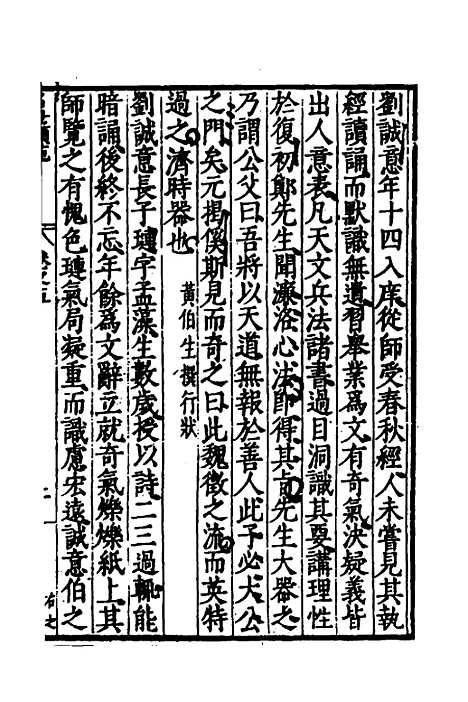 劉誠意年十四入庠從師受春秋經人未嘗見其執
經讀誦而默識無遺習舉業爲文有奇氣決疑義皆
出人意表凡天文兵法諸書過目洞識其要講理性
於復初鄭先生聞濂洛心法即得其旨先生大器之
乃謂公父曰吾將以天道無報於善人此子必大公
之門矣元揭傒斯見而奇之曰此魏徵之流而英特
過之濟時器也　黃伯生撰行狀
劉誠意長子璉字孟藻生數歲授以詩二三過輒能
暗誦後終不忘年餘爲文辭立就奇氣爍爍紙上其
師覽之有愧色璉氣局凝重而識慮宏遠誠意伯之